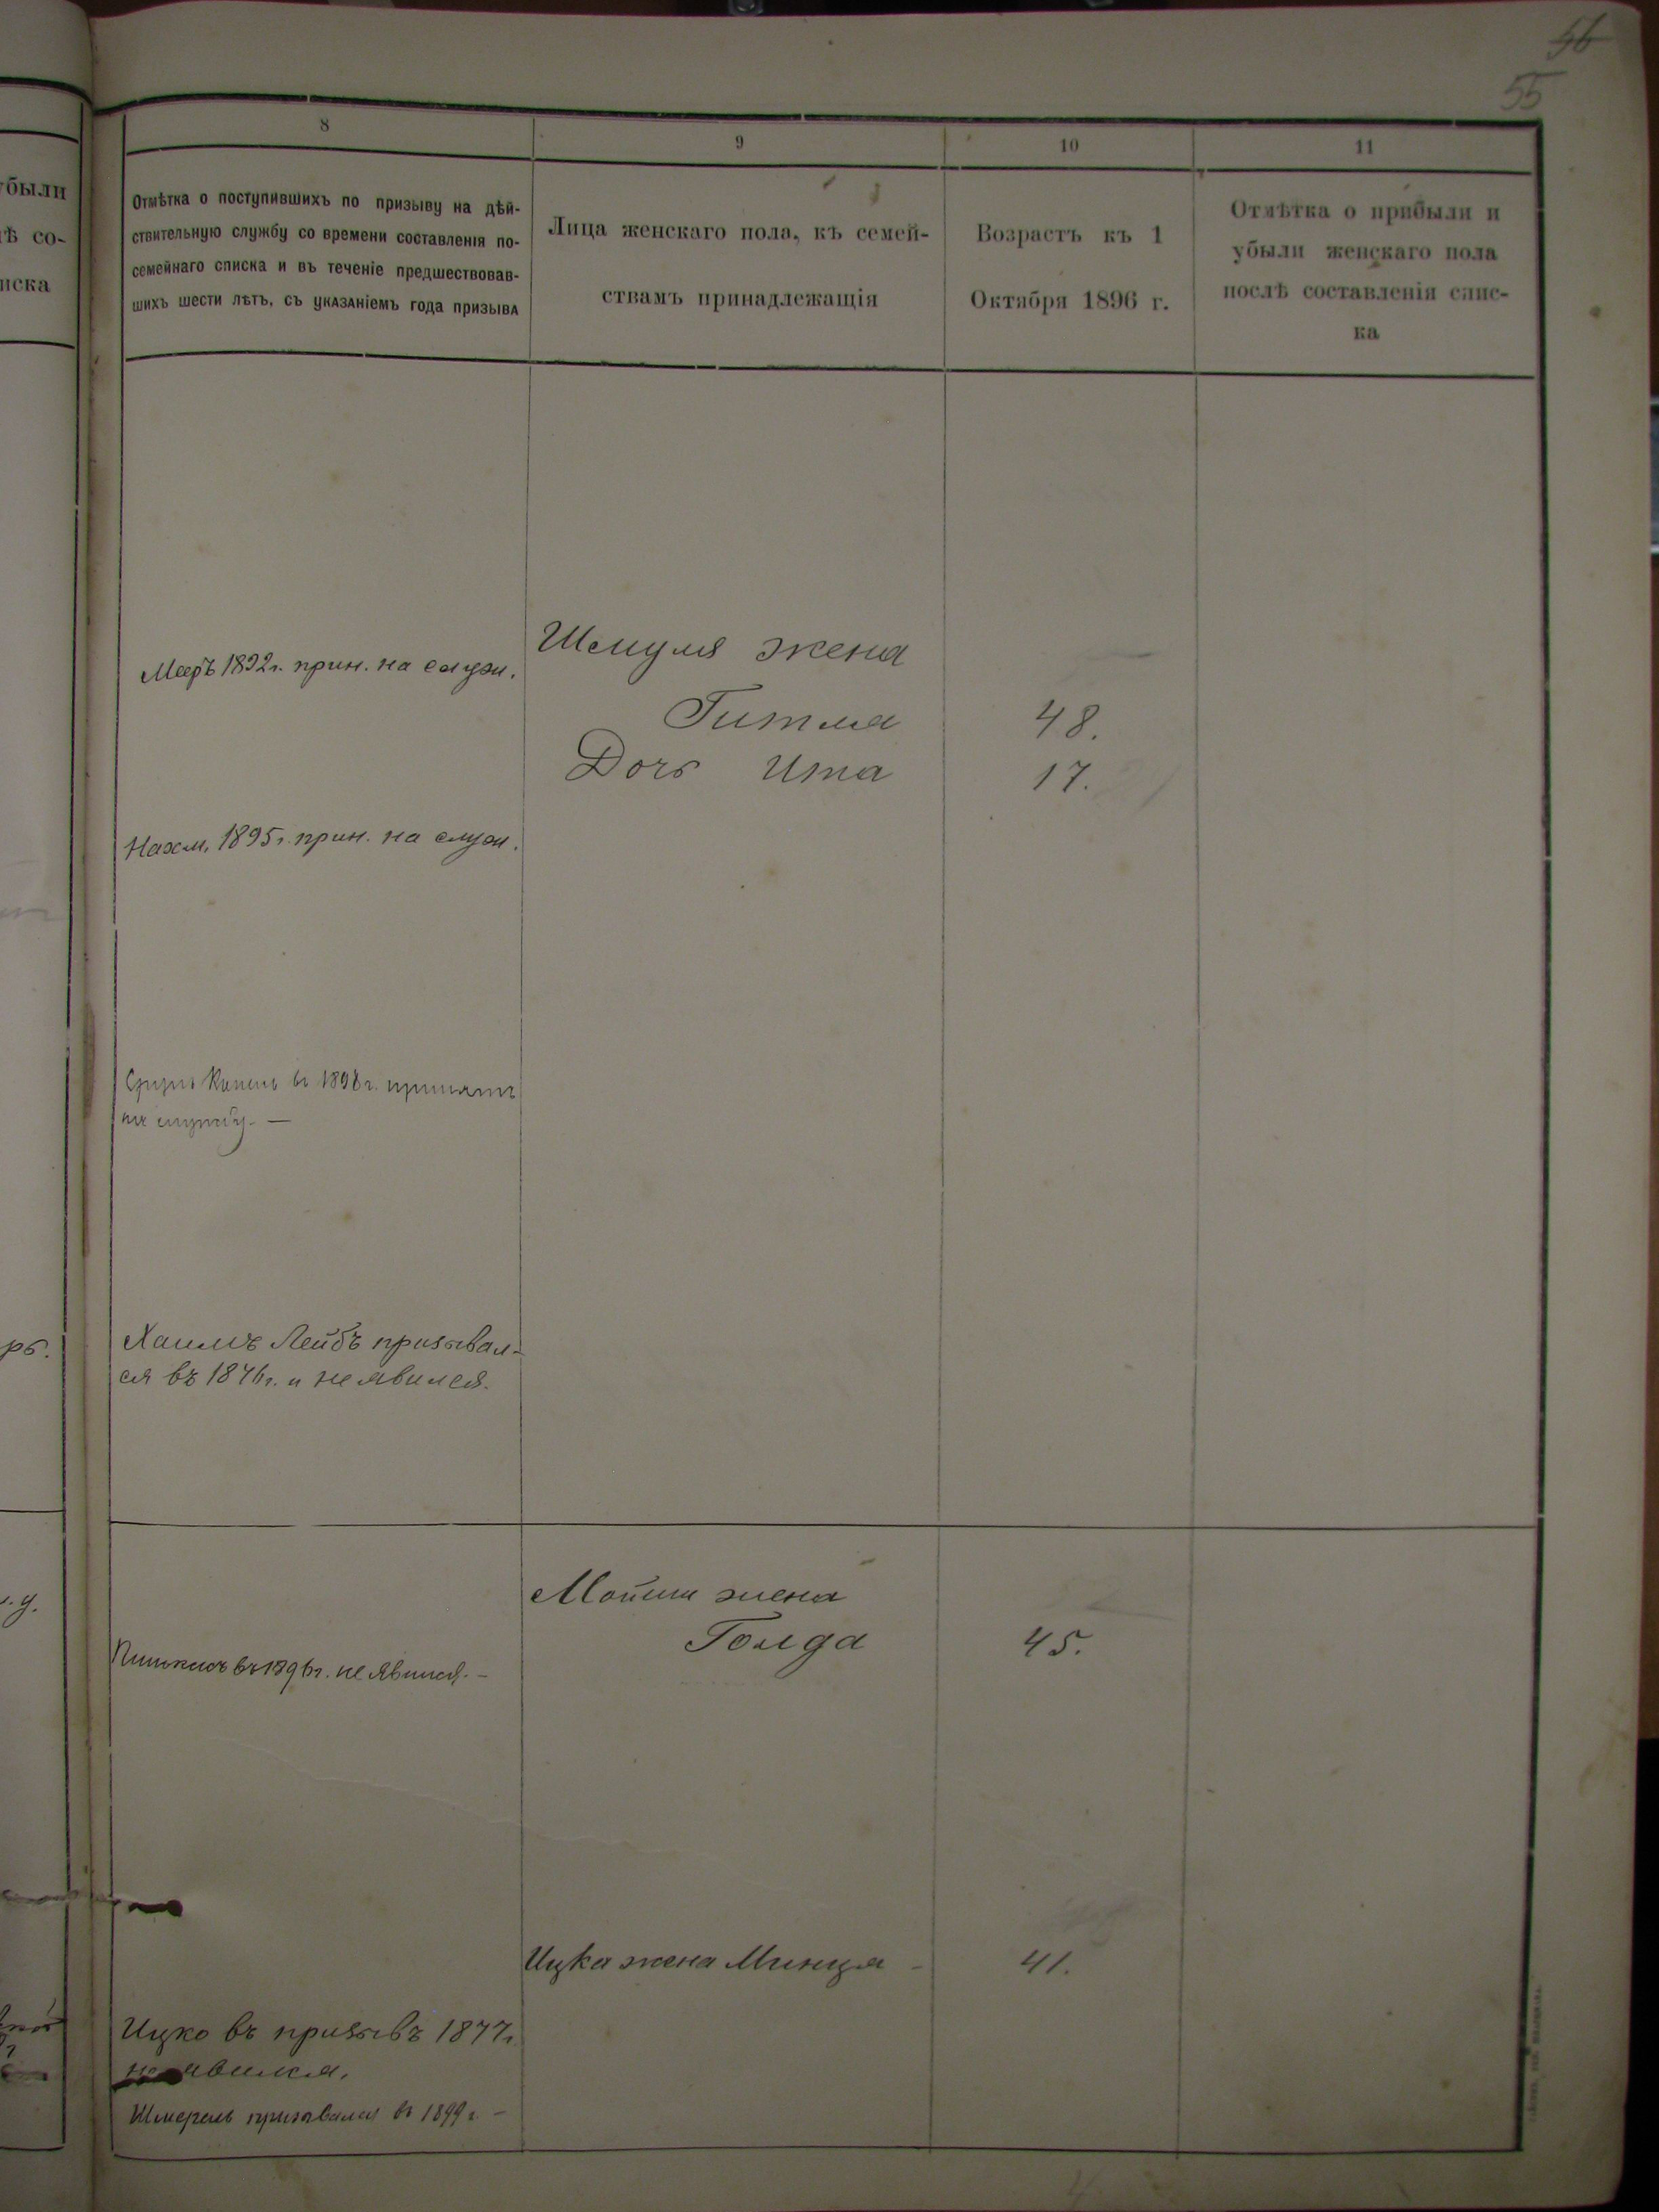 56
55
8
9
10
11
Отмѣтка о поступившихъ по призыву на дѣй-
ствительную службу со времени составленія по-
семейнаго списка и въ теченіе предшествовав-
шихъ шести лѣтъ, съ указаніемъ года призыва
Лица женскаго пола, къ семей-
ствамъ принадлежащія
Возрастъ къ 1
Октября 1896 г.
Отмѣтка о прибыли и
убыли женскаго пола
послѣ составленія спис-
ка
были
ѣ со-
иска
Шмуля жена
Мееръ 1892 г. прин. на служ.
Гитля 48.
Дочь Ита 17.
Нахм. 1895 г. прин. на служ.
въ 1898 г. принятъ
на службу. —
рь.
Хаимъ Лейбъ призывал-
ся въ 1876 г. и не явился.
Мошки жена
Голда 45.
въ 1896 г. не явился. —
Ицка жена Минця - 41.
Ицко въ призывъ 1877 г.
не явился.
Шмерель призывался въ 1899 г. —